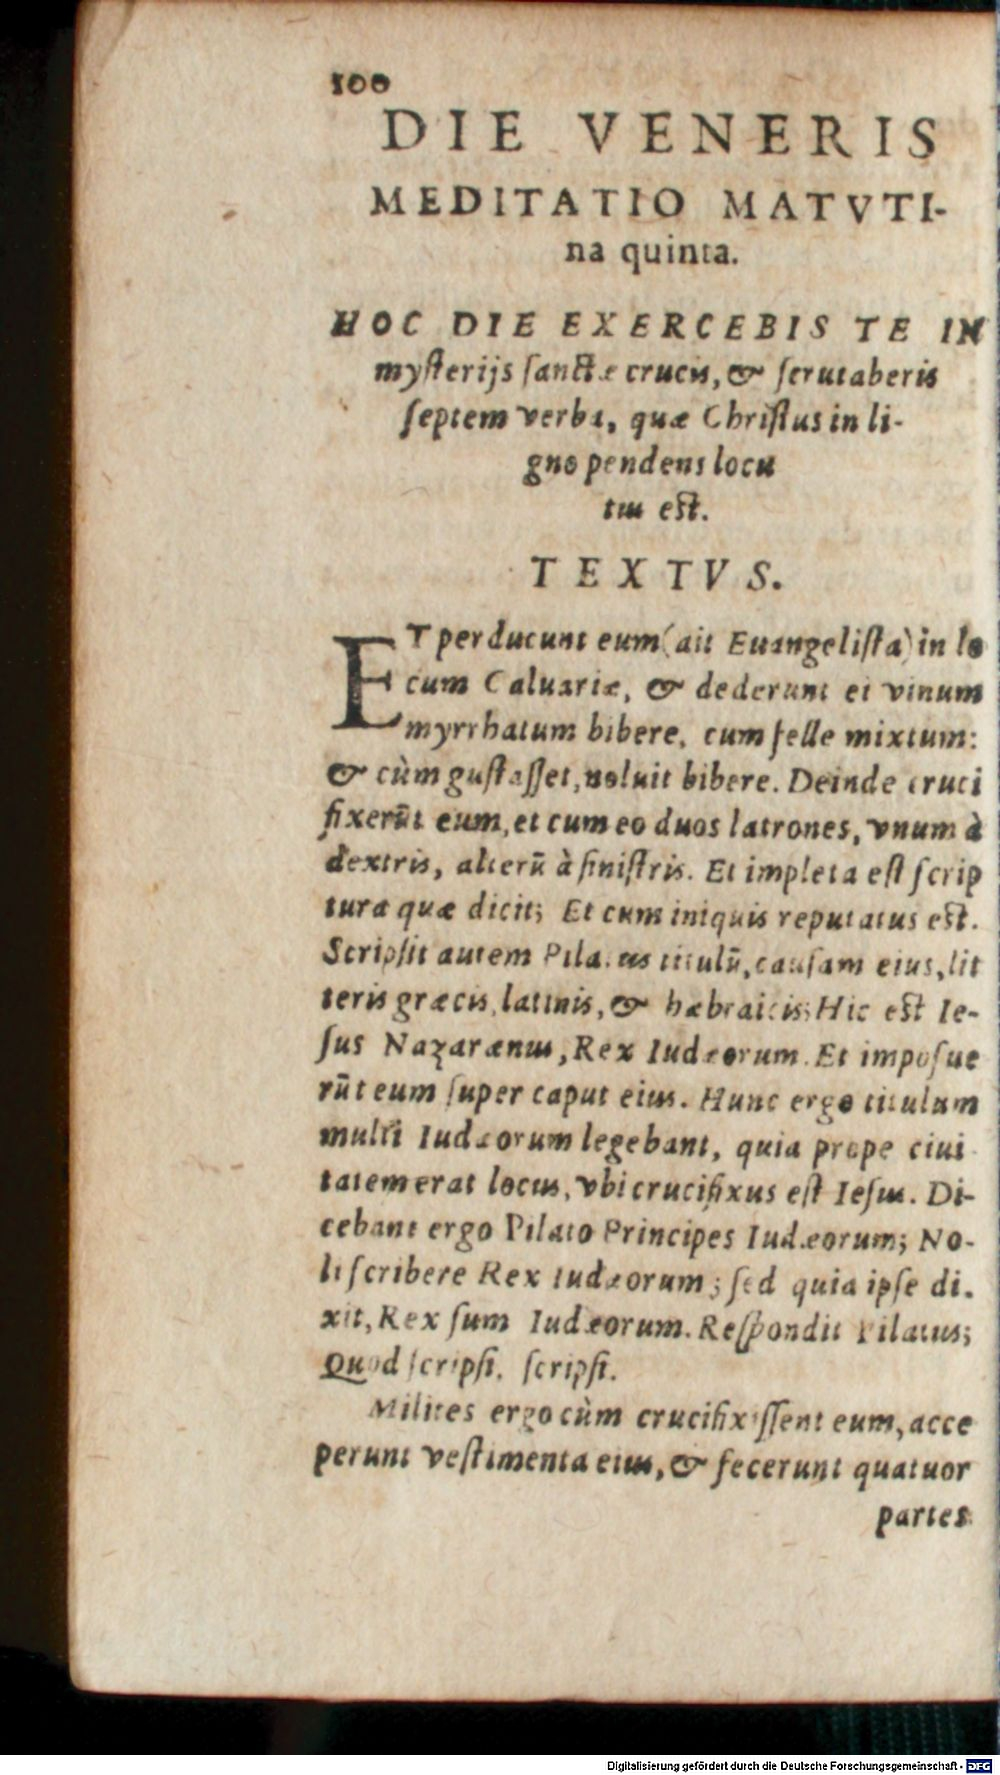 100
DIE VENERIS
MEDITATIO MATVTI-
na quinta.
HOC DIE EXERCEBIS TE IN
myſterijs ſanctæ crucis, & ſcrutaberis
ſeptem verba, quæ Chriſtus in li-
gno pendens locu
tus eſt.
TEXTVS.
ET perducunt eum (ait Euangeliſta) in lo
cum Caluariæ, & dederunt ei vinum
myrrhatum bibere, cum felle mixtum:
& cùm guſtaſſet, noluit bibere. Deinde cruci
fixerūt eum, et cum eo duos latrones, vnum à
dextris, alterū à ſiniſtris. Et impleta eſt ſcrip
tura quæ dicit; Et cum iniquis reputatus eſt.
Scripſit autem Pilatus titulū, cauſam eius, lit
teris græcis, latinis, & hæbraicis; Hic eſt Ie-
ſus Nazarænus, Rex Iudæorum. Et impoſue
rūt eum ſuper caput eius. Hunc ergo titulum
multi Iudæorum legebant, quia prope ciui
tatem erat locus, vbi crucifixus eſt Ieſus. Di-
cebant ergo Pilato Principes Iudæorum; No-
li ſcribere Rex Iudæorum; ſed quia ipſe di.
xit, Rex ſum Iudæorum. Reſpondit Pilatus;
Quod ſcripſi, ſcripſi.
Milites ergo cùm crucifixiſſent eum, acce
perunt veſtimenta eius, & fecerunt quatuor
partes
Digitalisierung gefördert durch die Deutsche Forschungsgemeinschaft - DFG